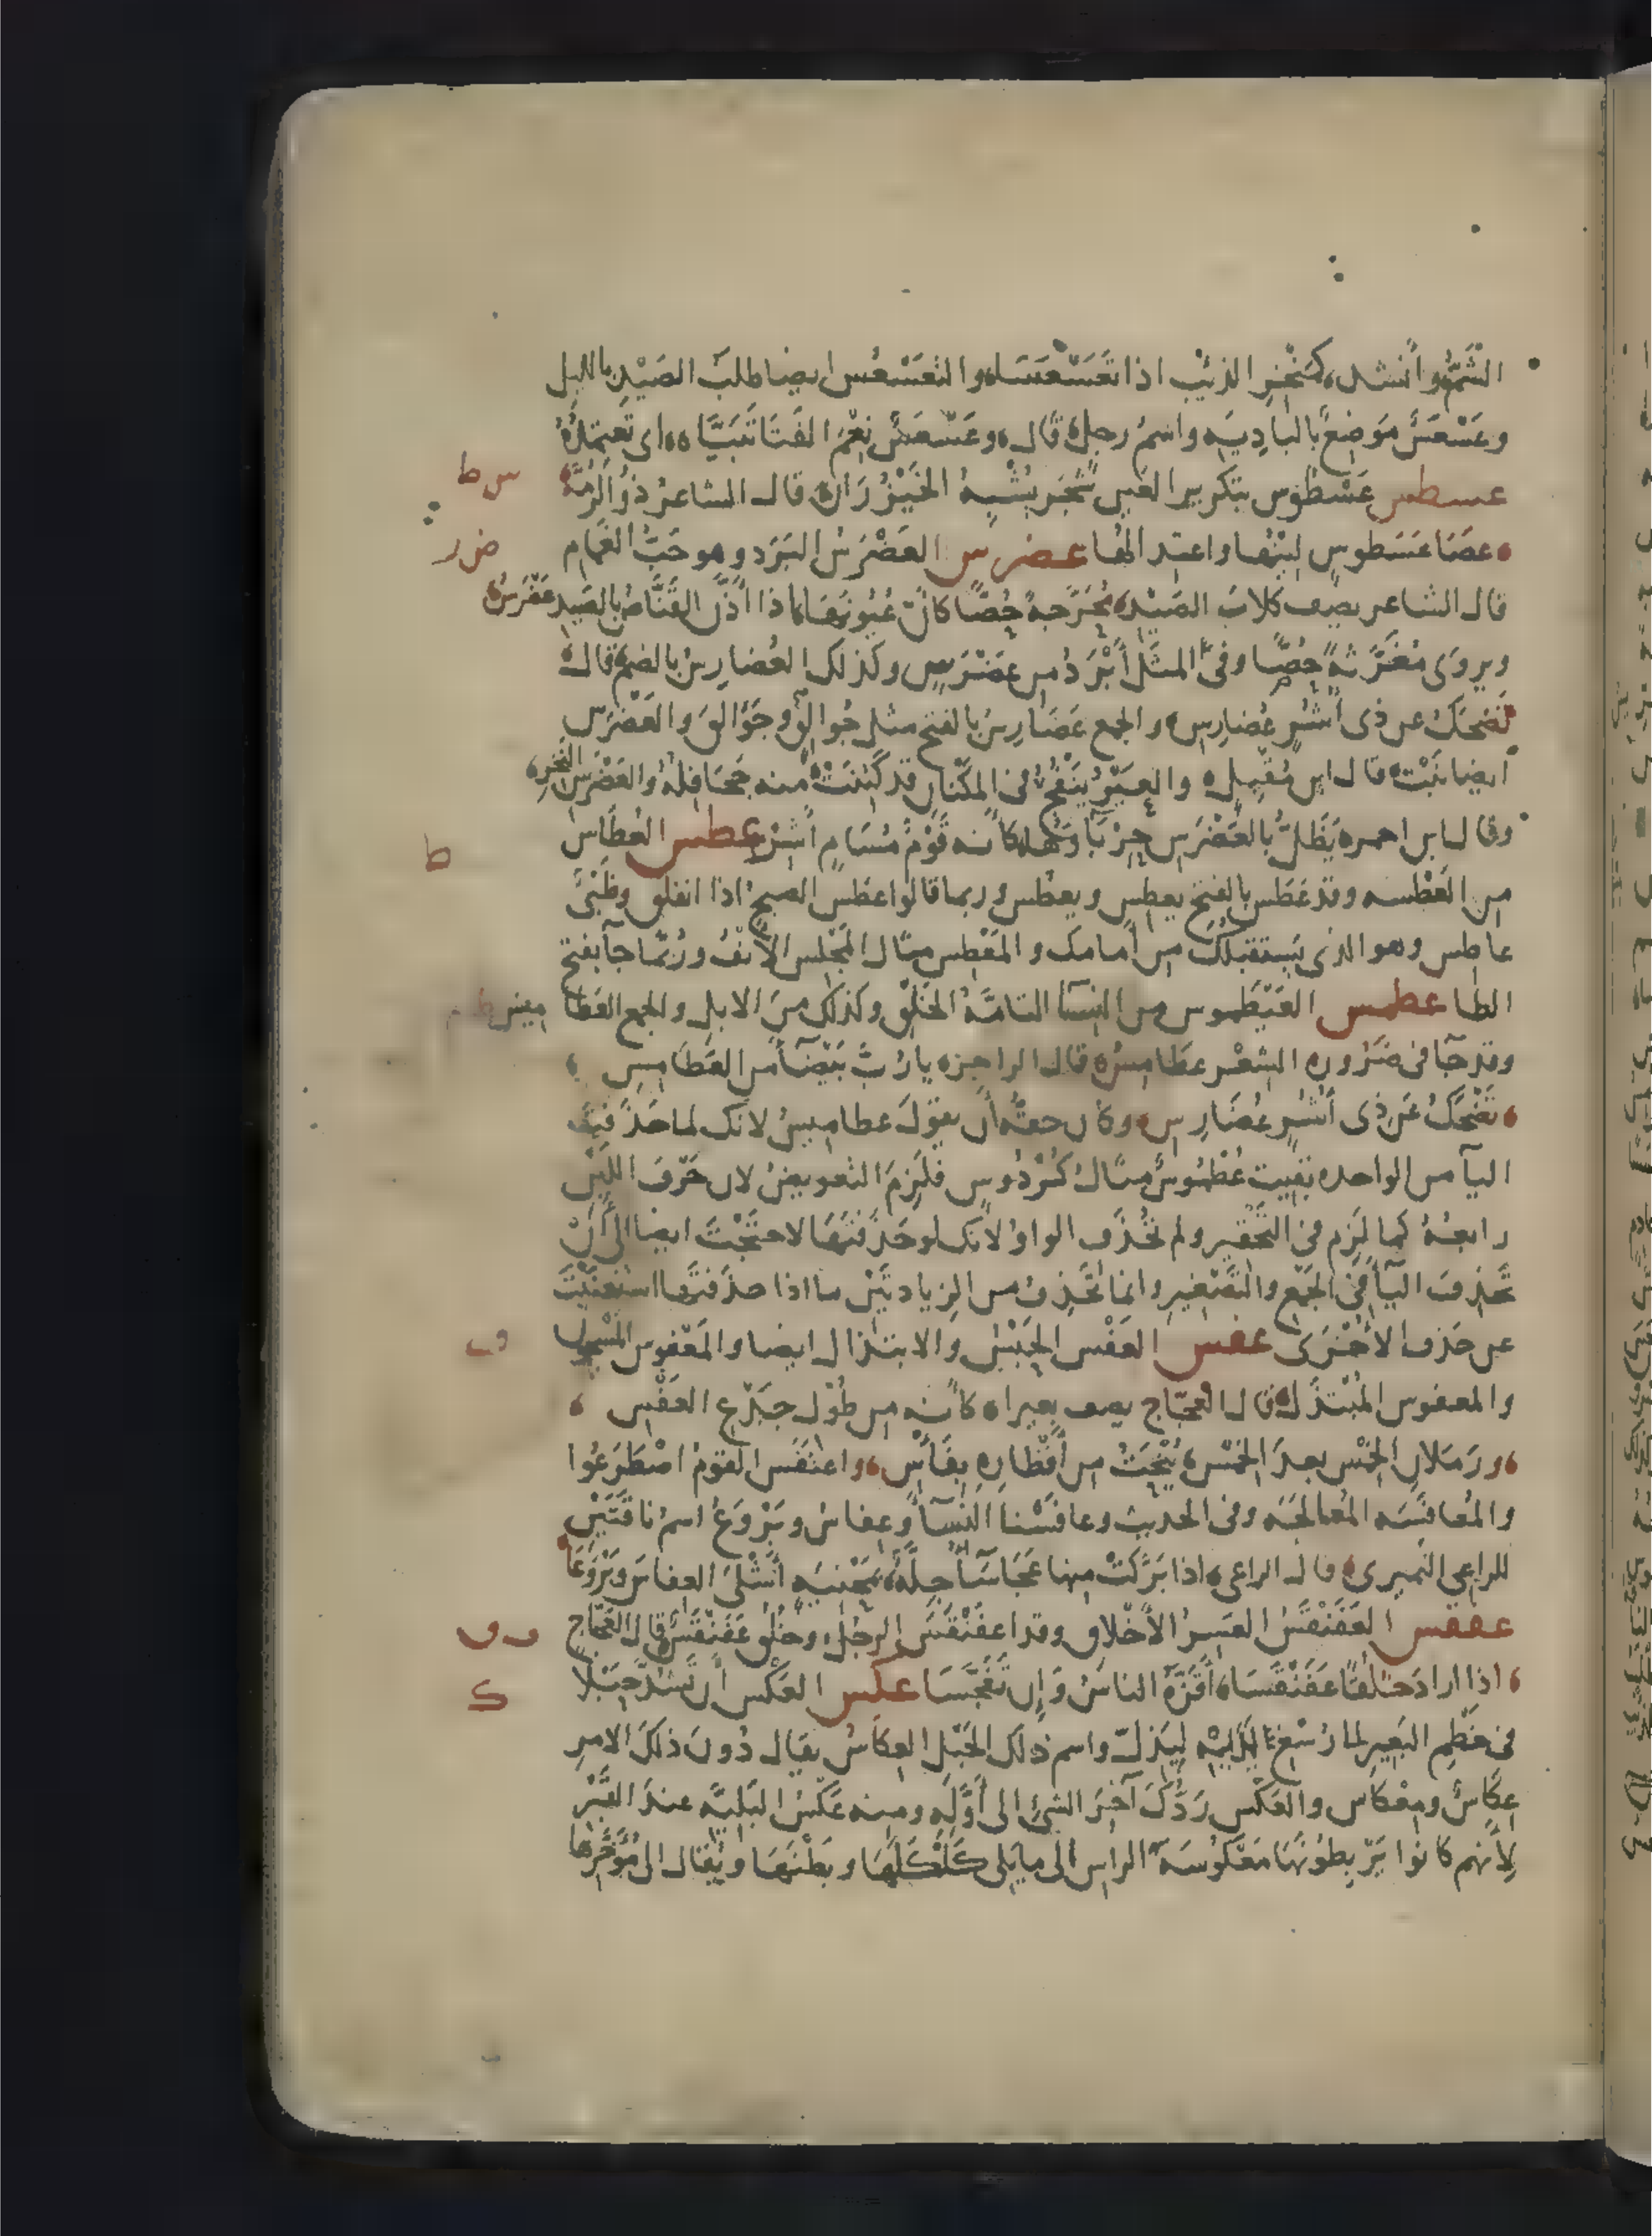 الشَّمُّ وأنشد، كمنْخِرِ الذئْبِ اذا تَعَسْعَسَا، والتعَسْعُس ايضا طلبَ الصَيْدِ بالليل
وعَسْعَسُ مَوضِعٌ بالبادِيَةِ واسمُ رجلٍ قال، وعَسْعَسُ نِعْمَ الفَتَا تَبَيَّاه، اى تَعتمِدُهُ
عسطس عَسَّطُوس بتكرير العين شجَر يُشْبِهُ الخَيْزُرَان، قال الشاعرُ ذوُ الرُمَّة
عصَا عَسَّطوسٍ لينُها واعتدالها عضرس العَضْرَسُ البَرَد وهو حَبُّ الغمَام
قال الشاعر يصف كلابَ الصَيْدِ، مُحَرَّجةٌ حُصًّا كأنّ عُيُونَها، اذا أذَّن القَنَّاصُ بالصَيدِ عَضْرَسُ
ويروَى مُغَرَّثةً حُصًّا وفى المثَلِ أبْرَدُ من عَضْرَسٍ وكذلك العُضارِسُ بالضم، قال
تَضحَكُ عن ذى أُشُرٍ عُضارِسِ، والجمع عَضَارِسُ بالفتح مثل جُوالِقٍ وجَوَالِقَ والعَضْرَس
ايضا نَبْت، قال ابن مُقْبِلٍ، والعَيْرُ يَنْفُخُ فى المَكْنانِ قد كَتِنَتْ، منه جَحَافِلُهُ والعَضْرَسِ الثُّجَرِ
وقال ابن احمر، يَظَلُّ بالعَضْرَسِ حِرْبَاؤُها، كأنه قَوْمٌ مُسَامٍ أشِرْ عطس العُطَاس
من العَطْسه وقد عَطَس بالفتح يعطِس ويعطُس وربما قالوا عطَس الصبحُ اذا انفلق وظَبْىٌ
عاطِس وهو الذى يَستقبلُك من أمامك والمَعْطِس مثال المَجْلِس الأنْفُ ورُبَّما جآ بفتح
الطا عطمس العَيْطَموس من النسآ التامَّةُ الخَلْقِ وكذلك مِنَ الابل والجمع العَطَا ميس
وقد جآ فى ضَرُوره الشعْر عطَامِسُ، قال الراجز، يا رُبَّ بَيْضَآ من العَطامِسِ
تَضْحَكُ عَن ذى أُشُرٍ عُضَارِسِ، وكان حقُّه أن يقول عطاميسُ لانك لما حذَفتَ
اليآ من الواحده بَقِيت عُطْمُوسٌ مثالُ كُرْدُوسٍ فلَزِمَ التعويضُ لان حَرفَ اللِّينِ
رابعُهُ كما لَزِم فى التَّحْقير ولم تحْذَفِ الواوُ لأنك لو حَذَفتَها لاحتَجْتَ ايضا الى أنْ
تَحذِفَ اليآ فى الجَمْع والتَّصْغير وانما تَحْذِفُ من الزيادتَيْنِ ما اذا حذفتَها استغنَيْتَ
عن حَذفِ الأُخْرَى عفس العَفْس الحَبْسُ والابتذال ايضا والمَعْفوس المسْجون
والمعفوس المُبْتَذَلُ، قال العَجّاج يصف بعيرا، كأنه من طُوْلِ جَذْعِ العَفْسِ
ورَمَلانِ الخِمْسِ بعدَ الخِمْسِ، يُنْحَتُ من أقْطَارِهِ بِفَأْسِ، واعتَفَس القومُ اصْطَرَعُوا
والمُعافسَه المُعالَجَه وفى الحديث وعافَسْنا النسآ وعِفاسُ وبَرْوَعُ اسم ناقَتَيْنِ
للراعى النُمَيرى، قال الراعى، اذا بَرَكتْ منها عَجَاسآ جِلَّةٌ، بمَحْنيَه أشْلَى العِفاسَ وبَرْوَعَا
عفقس العَفَنْقَسُ العَسِرُ الأخْلاقِ وقد اعْفَنْقَسَ الرجلُ، وخُلُقٌ عَفَنْقَسٌ، قال العَجّاج
اذا ارادَ خُلُقًا عَفَنْقَسَا، أقَرَّهُ الناسُ وَإن تَفَجَّسَا عكس العَكْس أن تَشُدَّ حَبْلا
فى خَطْمِ البَعِير الى رُسْغ يَدَيْهِ لِيَذِلّ واسم ذلك الحَبْلِ العِكَاسُ يقال دُونَ ذلكَ الامرِ
عِكَاسٌ ومِعْكاس والعَكْس رَدُّكَ آخِرَ الشئِ الى أوَّلهِ ومنه عَكْسُ البَلِيَّه عندَ القَبْر
لِأنهم كانوا يَرْبِطوُنَها مَعْكُوسَةَ الراسِ الى ما يَلِى كَلْكَلَها وبَطْنَها ويُقال الى مُؤَخَّرِها
س ط
ض ر ر
ط
ف
ف ق
ك